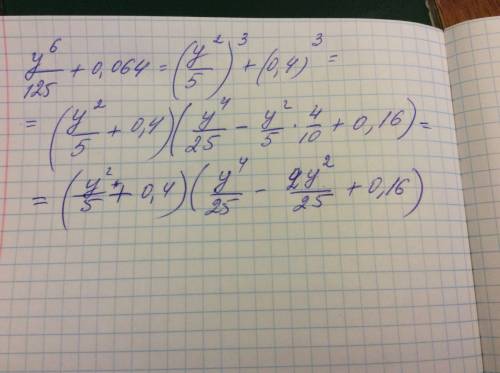 y⁶/125 + 0,064 = (y²/5)³ + (0,4)³ =
= (y²/5 + 0,4)(y⁴/25 − y²/5 · 4/10 + 0,16) =
= (y²/5 + 0,4)(y⁴/25 − 2y²/25 + 0,16)